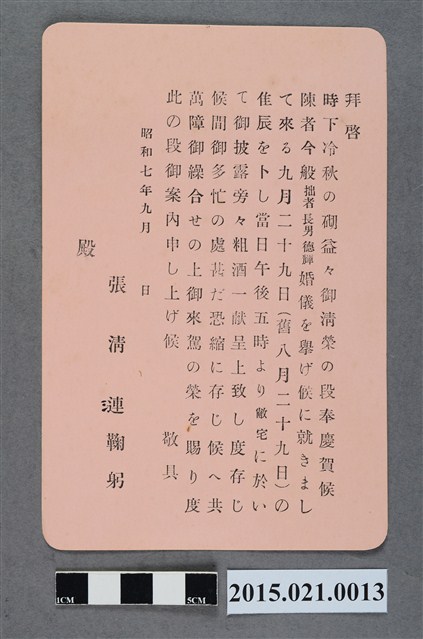 拝啓
時下冷秋の砌益々御淸榮の段奉慶賀候
陳者今般拙者長男德輝婚儀を擧げ候に就きまし
て來る九月二十九日(舊八月二十九日)の
隹辰を卜し當日午後五時より敝宅に於い
て御披露旁々粗酒一献呈上致し度存じ
候間御多忙の處甚だ恐縮に存じ候へ共
萬障御繰合せの上御來駕の榮を賜り度
此の段御案內申し上げ候 敬具
昭和七年九月 日
張淸漣鞠躬
殿
1CM 5CM
2015.021.0013